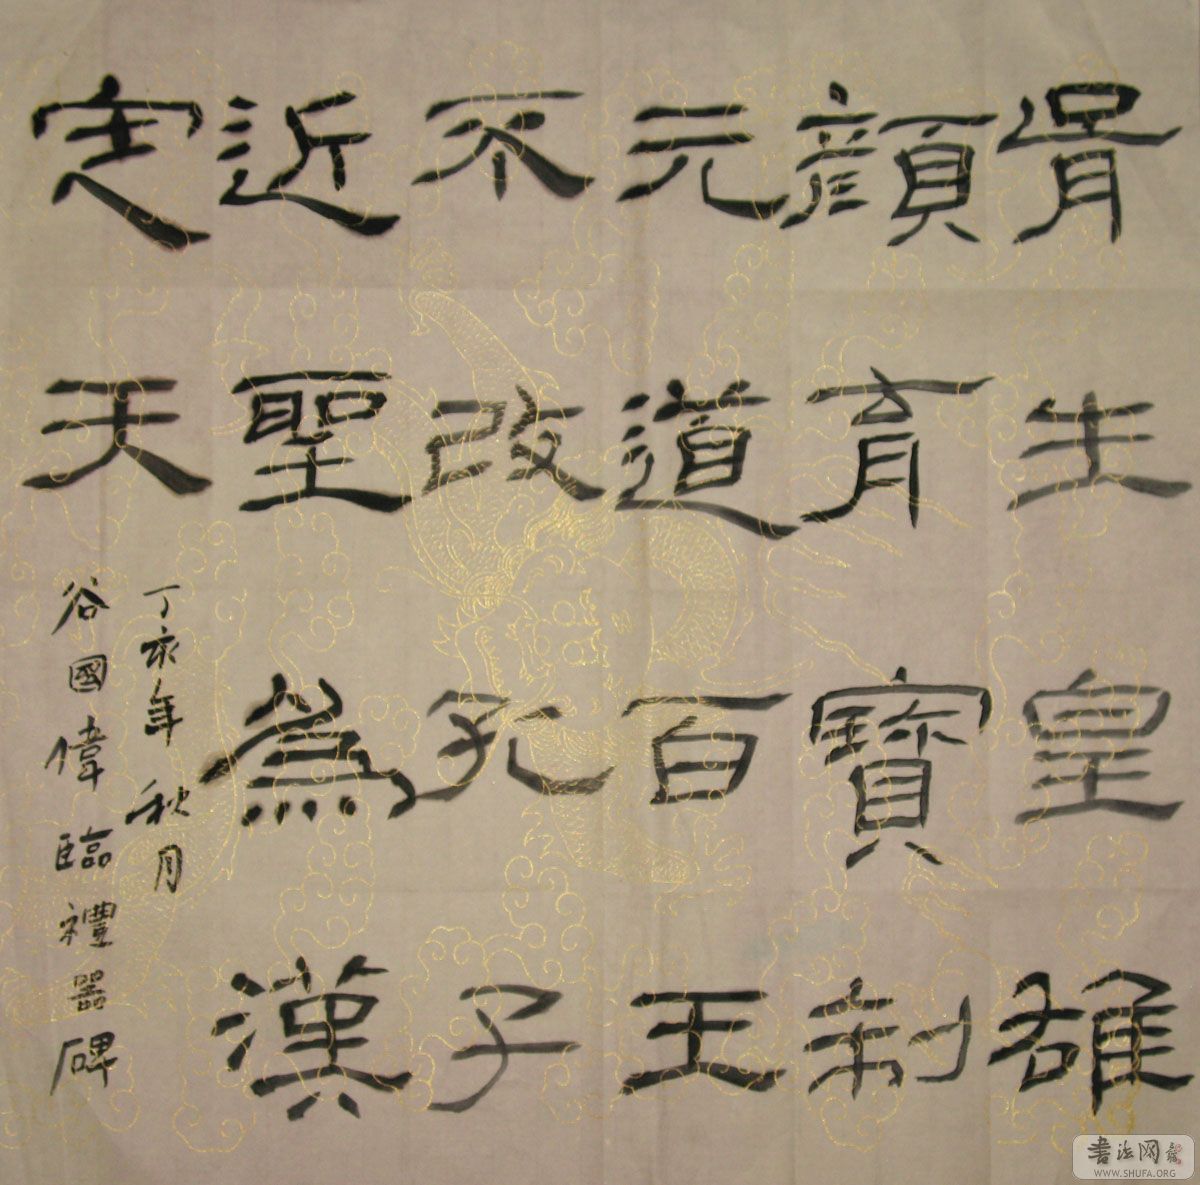 胥生皇雄
顏育寶制
元道百王
不改孔子
近聖為漢
定天
丁亥年秋月
谷國偉臨禮器碑
書法网
WWW.SHUFA.ORG